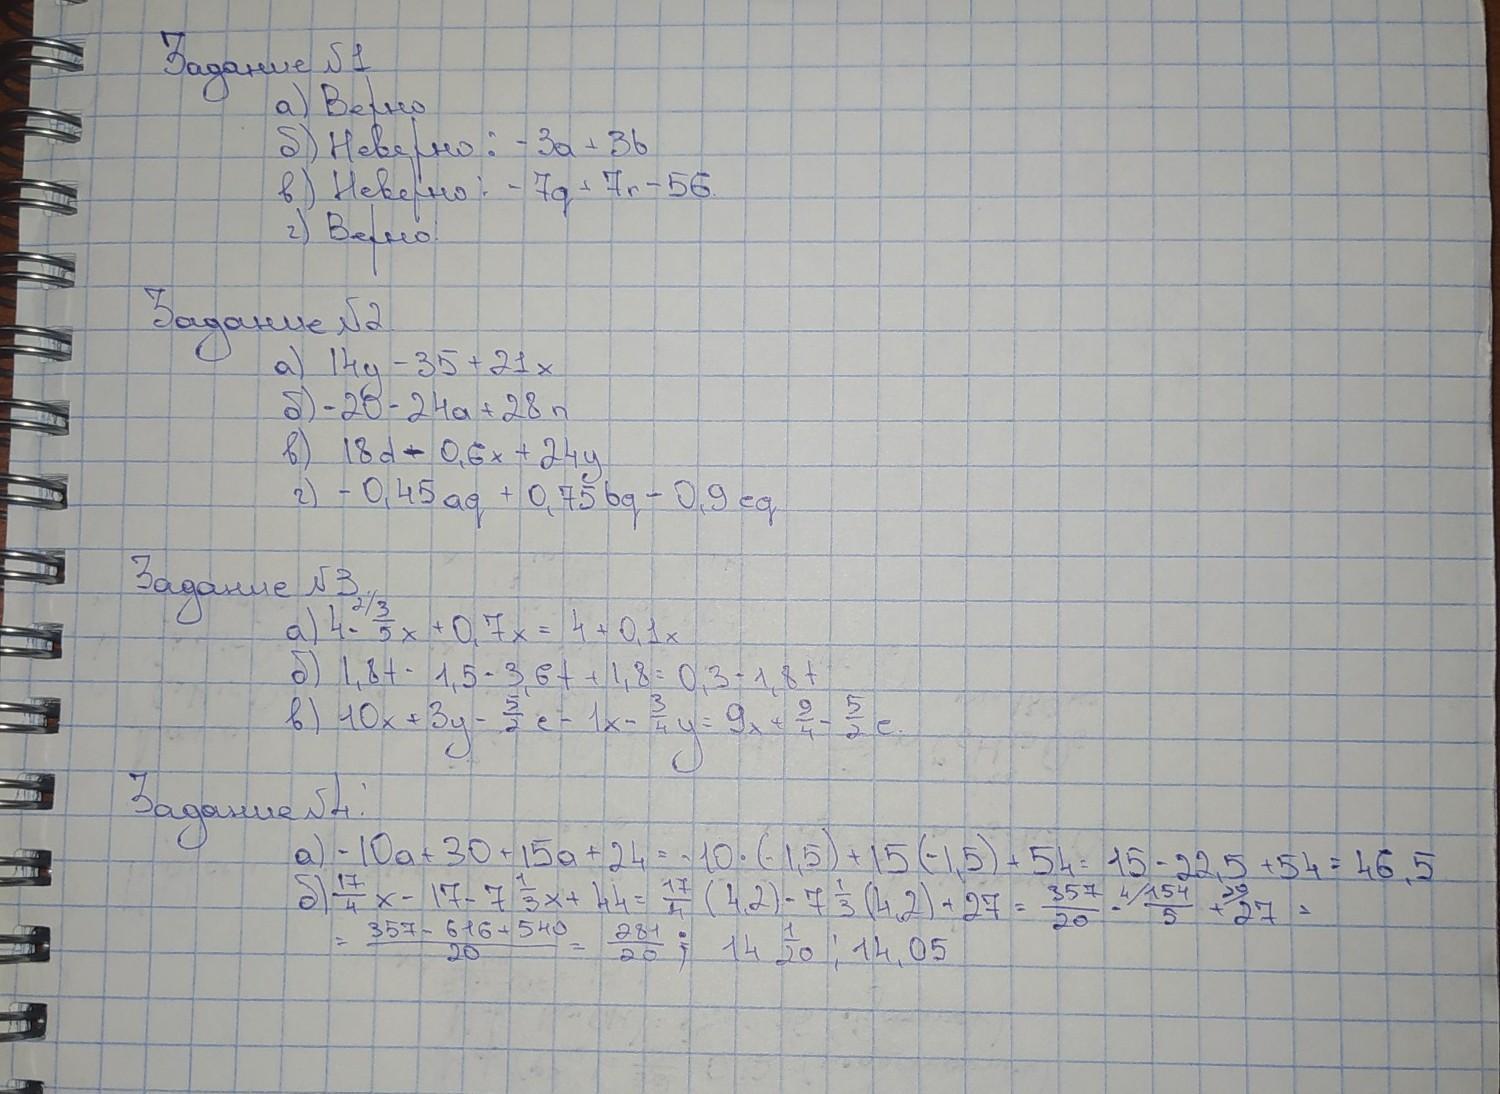 Задание №1
а) Верно
б) Неверно: -3a + 3b
в) Неверно: -7q + 7r - 56.
г) Верно.
Задание №2
а) 14y - 35 + 21x
б) -20 - 24a + 28n
в) 18d - 0,6x + 24y
г) -0,45aq + 0,75bq - 0,9cq
Задание №3
а) 4 - 2/ 3/5 x + 0,7x = 4 + 0,1x
б) 1,8t - 1,5 - 3,6t + 1,8 = 0,3 - 1,8t
в) 10x + 3y - 5/2 c - 1x - 3/4 y = 9x + 9/4 - 5/2 c.
Задание №4:
а) -10a + 30 + 15a + 24 = -10·(-1,5) + 15(-1,5) + 54 = 15 - 22,5 + 54 = 46,5
б) 17/4 x - 17 - 7 1/3 x + 44 = 17/4 (4,2) - 7 1/3 (4,2) + 27 = 357/20 - 4/ 154/5 + 20/ 27 =
= 357 - 616 + 540 / 20 = 281/20 ; 14 1/20 ; 14,05